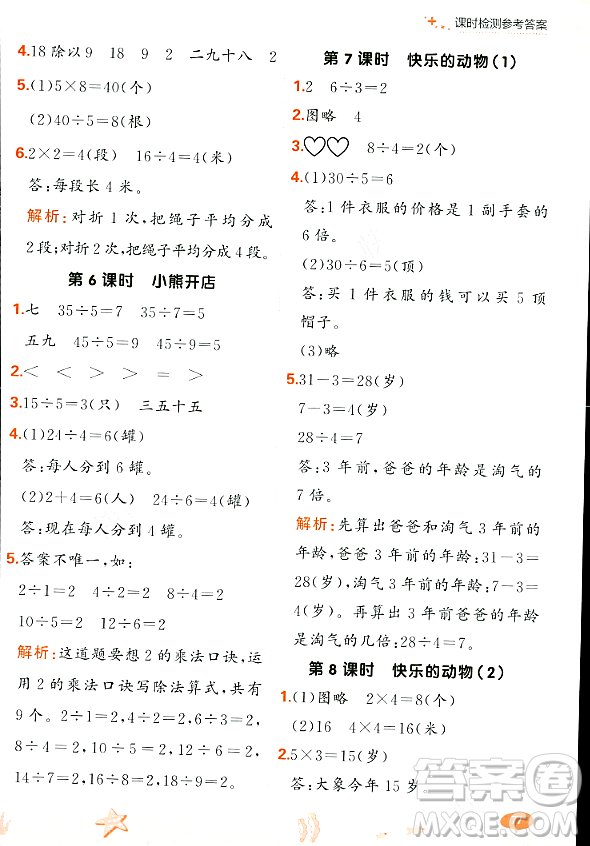 课时检测参考答案
4.18 除以 9  18  9  2  二九十八  2
5.(1)5×8=40(个)
(2)40÷5=8(根)
6.2×2=4(段)  16÷4=4(米)
答:每段长 4 米。
解析:对折 1 次,把绳子平均分成
2 段;对折 2 次,把绳子平均分成 4 段。
第 6 课时  小熊开店
1.七  35÷5=7  35÷7=5
五九  45÷9=5  45÷5=9
2.<  <  >  >  =  >
3.15÷5=3(只)  三五十五
4.(1)24÷4=6(罐)
答:每人分到 6 罐。
(2)2+4=6(人)  24÷6=4(罐)
答:现在每人分到 4 罐。
5.答案不唯一,如:
2÷1=2  4÷2=2  8÷4=2
10÷5=2  12÷6=2
解析:这道题要想 2 的乘法口诀,运
用 2 的乘法口诀写除法算式,共有
9 个。2÷1=2,4÷2=2,6÷3=2,
8÷4=2,10÷5=2,12÷6=2,
14÷7=2,16÷8=2,18÷9=2。
第 7 课时  快乐的动物(1)
1.2  6÷3=2
2.图略  4
3.♡♡  8÷4=2(个)
4.(1)30÷5=6
答:1 件衣服的价格是 1 副手套的
6 倍。
(2)30÷6=5(顶)
答:买 1 件衣服的钱可以买 5 顶
帽子。
(3)略
5.31-3=28(岁)
7-3=4(岁)
28÷4=7
答:3 年前,爸爸的年龄是淘气的
7 倍。
解析:先算出爸爸和淘气 3 年前的
年龄,爸爸 3 年前的年龄:31-3=
28(岁),淘气 3 年前的年龄:7-3=
4(岁)。再算出 3 年前爸爸的年龄
是淘气的几倍:28÷4=7。
第 8 课时  快乐的动物(2)
1.(1)图略  2×4=8(个)
(2)16  4×4=16(米)
2.5×3=15(岁)
答:大象今年 15 岁。
答案圈